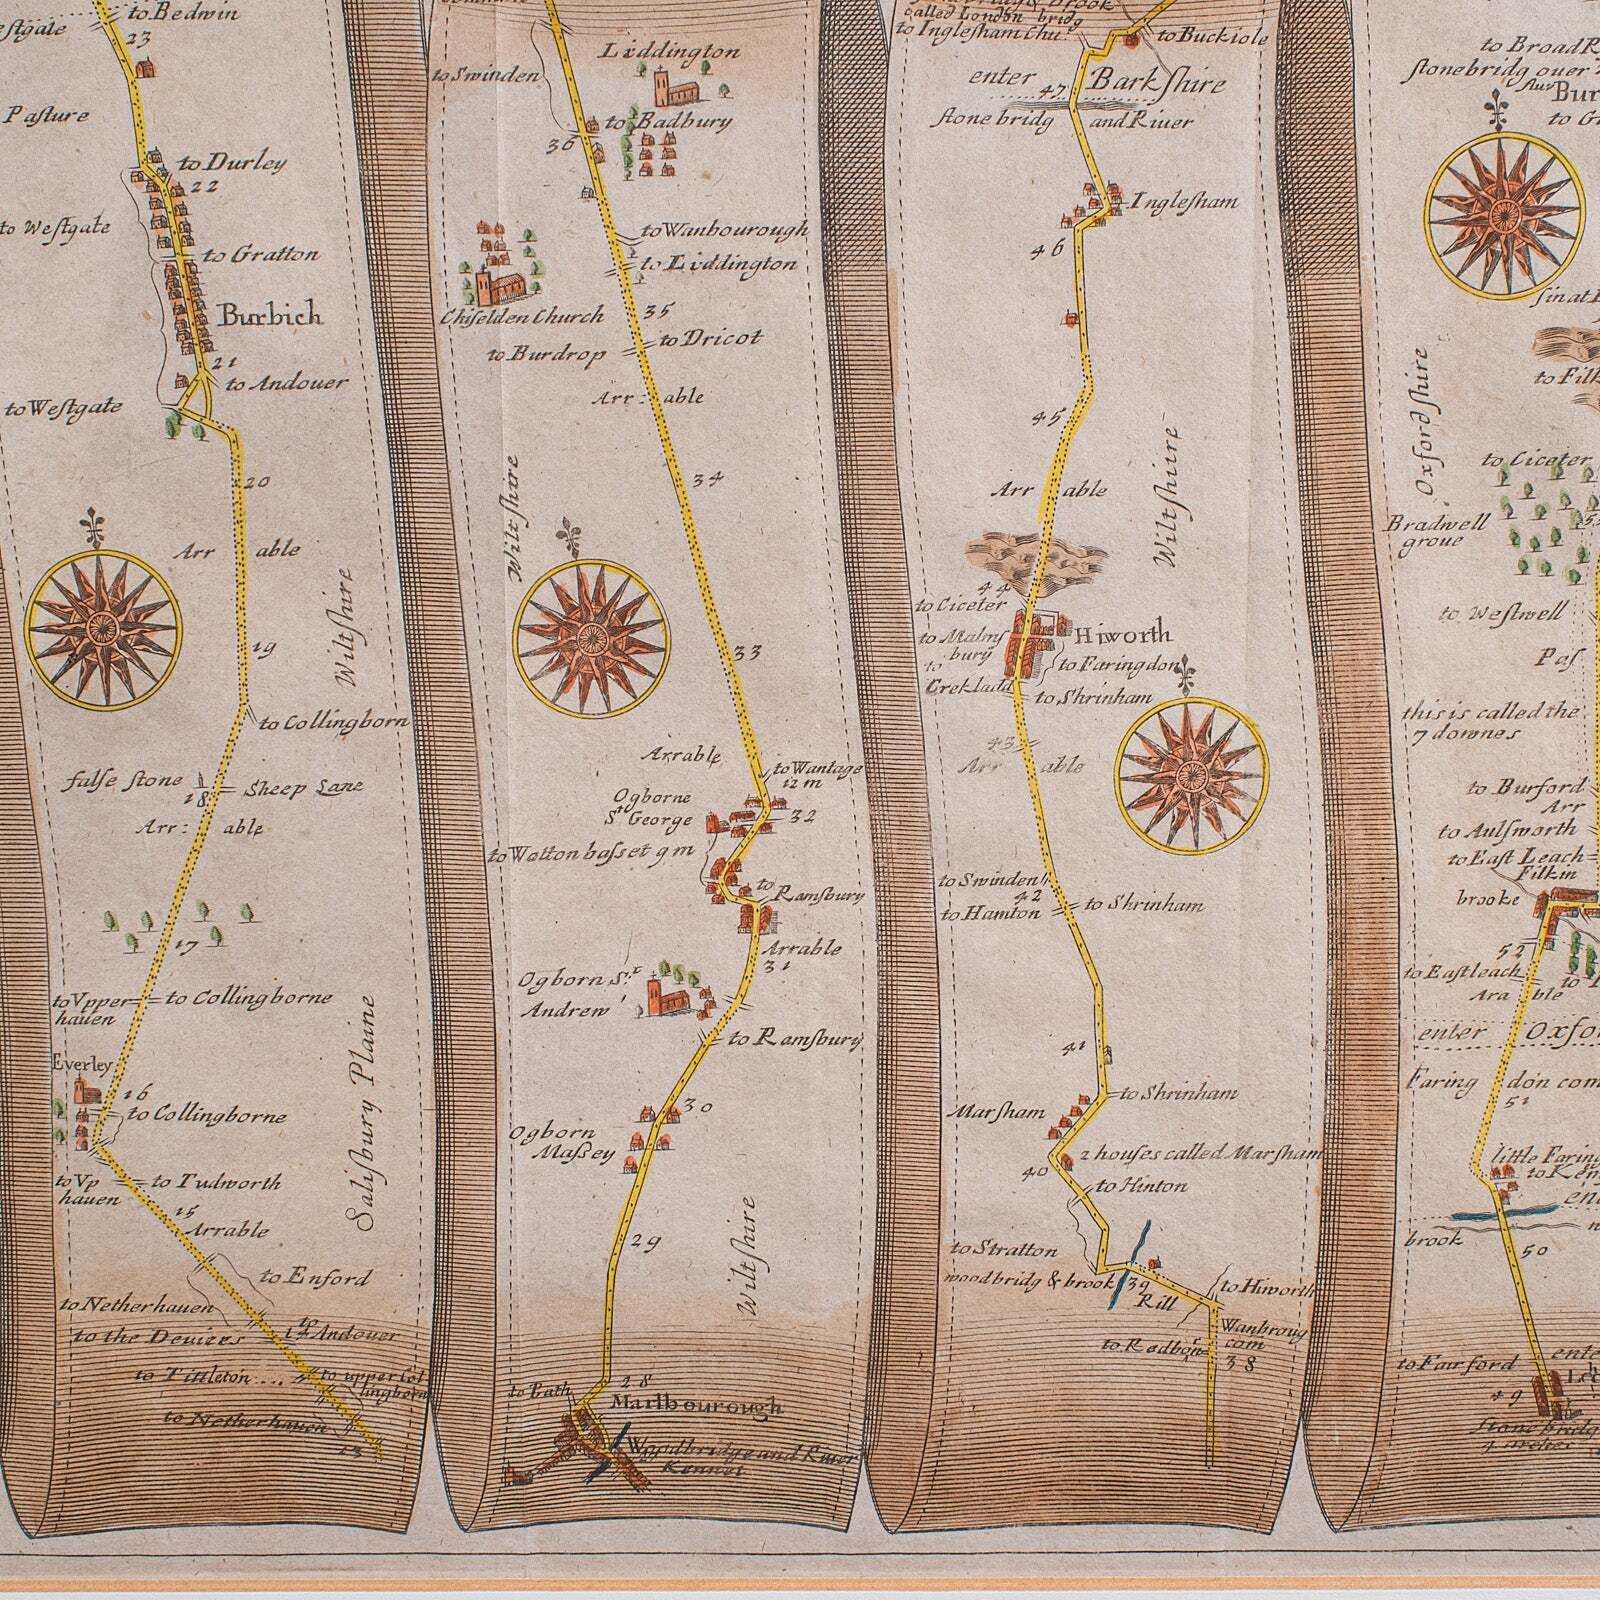 to Bedwin
23
Paſture
to Durley
22
to Weſtgate
to Gratton
Burbich
21
to Andouer
to Weſtgate
20
Arr able
19
Wiltſhire
to Collingborn
falſe ſtone
18
Sheep Lane
Arr: able
17
to Vpper hauen
to Collingborne
Everley
16
to Collingborne
Saliſbury Plaine
to Vp hauen
to Tudworth
15
Arrable
to Enford
to Netherhauen
to the Deuizes
to Andouer
to Tittleton
to upper Col
lingborn
to Netherhauen
13
Liddington
to Swinden
to Badbury
36
to Wanbourough
to Liddington
Chiſelden Church
35
to Burdrop
to Dricot
Arr: able
34
Wiltſhire
33
Arrable
to Wantage
12 m
Ogborne
St George
32
to Wotton baſset 9 m
to
Ramſbury
Arrable
31
Ogborn St
Andrew
to Ramſbury
30
Ogborn
Maſsey
29
Wiltſhire
28
to Bath
Marlbourough
Woodbridge and River
Kennet
called London bridg
to Ingleſham Chu:
to Buckiole
enter
Barkſhire
47
ſtone bridg and Riuer
Ingleſham
46
45
Wiltſhire
Arr able
44
to Ciceter
Hiworth
to Malmſ
bury
to Faringdon
to
Creklaid
to Shrinham
43
Arr able
to Swinden
42
to Hamton
to Shrinham
41
to Shrinham
Marſham
2 houſes called Marſham
40
to Hinton
to Stratton
woodbridg & brook
39
Rill
to Hiworth
Wanbroug
com
to Redbo
38
to Broad
ſtonebridg ouer
Bur
Oxfordſhire
to Filk
to Ciceter
Bradwell
groue
to Weſtwell
Paſ
this is called the
7 downes
to Burford
Arr
to Aulſworth
to Eaſt Leach
Filkin
brooke
52
to Eaſtleach
Ara ble
enter Oxfo
Faring don com
51
little Faring
to Kem
brook
50
to Fairford
49
Stone bridg